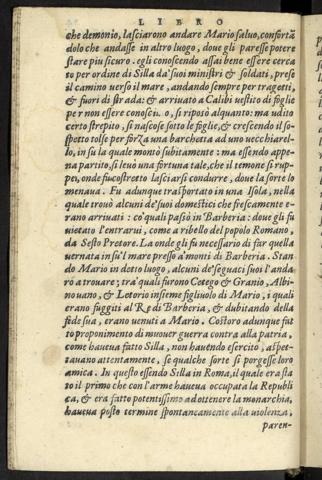 LIBRO
che demonio, lasciarono andare Mario saluo, confortã
dolo che andasse in altro luogo, doue gli paresse potere
stare piu sicuro. egli conoscendo assai bene essere cerca
to per ordine di Silla da' suoi ministri & soldati, prese
il camino uerso il mare, andando sempre per tragetti,
& fuori di strada: & arriuato a Calibi uestito di foglie
per non essere conosciuto, si riposò alquanto: ma udito
certo strepito, si nascose sotto le foglie, & crescendo il so-
spetto tolse per forza una barchetta ad uno uecchiarel-
lo, in su la quale montò subitamente: ma essendo appe-
na partito, si leuò una fortuna tale, che il temone si rup-
pe, onde fu costretto lasciarsi condurre, doue la sorte lo
menaua. Fu adunque trasportato in una Isola, nella
quale trouò alcuni de' suoi domestici che frescamente e-
rano arriuati: co' quali passò in Barberia: doue gli fu
uietato l'entrarui, come a ribello del popolo Romano,
da Sesto Pretore. La onde gli fu necessario di far quella
uernata in su'l mare presso a' monti di Barberia. Stan
do Mario in detto luogo, alcuni de' seguaci suoi l'anda
rò a trouare; tra' quali furono Cetego & Granio, Albi-
nouano, & Letorio insieme figliuolo di Mario, i quali
erano fuggiti al Re di Barberia, & dubitando della
fede sua, erano uenuti a Mario. Costoro adunque fat
to proponimento di muouer guerra contra alla patria,
come haueua fatto Silla, non hauendo esercito, aspet-
tauano attentamente, se qualche sorte si porgesse loro
amica. In questo essendo Silla in Roma, il quale era sta
to il primo che con l'arme haueua occupata la Republi
ca, & era fatto potentissimo ad ottenere la monarchia,
haueua posto termine spontaneamente alla uiolenza,
paren-